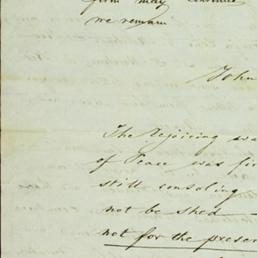 firm may continue
we remain
John
The Rejoicing was
of Peace was fir
still consoling
not be shed —
not for the presen